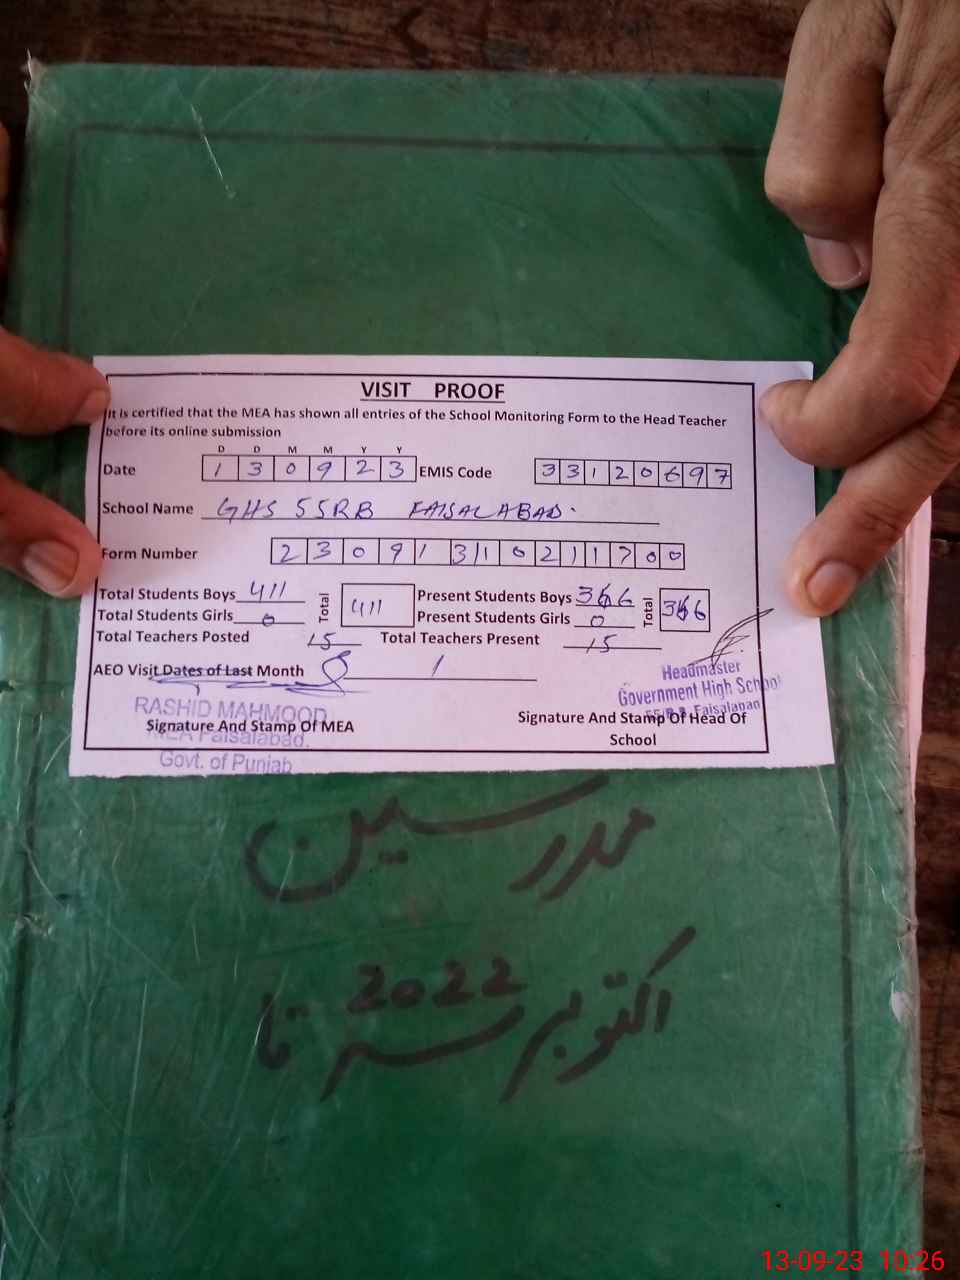 VISIT PROOF
It is certified that the MEA has shown all entries of the School Monitoring Form to the Head Teacher
before its online submission
D D M M Y Y
Date 1 3 0 9 2 3 EMIS Code 3 3 1 2 0 6 9 7
School Name GHS 55RB FAISALABAD.
Form Number 2 3 0 9 1 3 1 0 2 1 1 7 0 0
Total Students Boys 411 Total 411 Present Students Boys 366 Total 366
Total Students Girls 0 Present Students Girls 0
Total Teachers Posted 15 Total Teachers Present 15
AEO Visit Dates of Last Month 1
Headmaster
Government High School
55/R.B. Faisalabad
RASHID MAHMOOD
MEA Faisalabad.
Govt. of Punjab
Signature And Stamp Of MEA
Signature And Stamp Of Head Of
School
مدرسین
اکتوبر 2022 تا
13-09-23 10:26